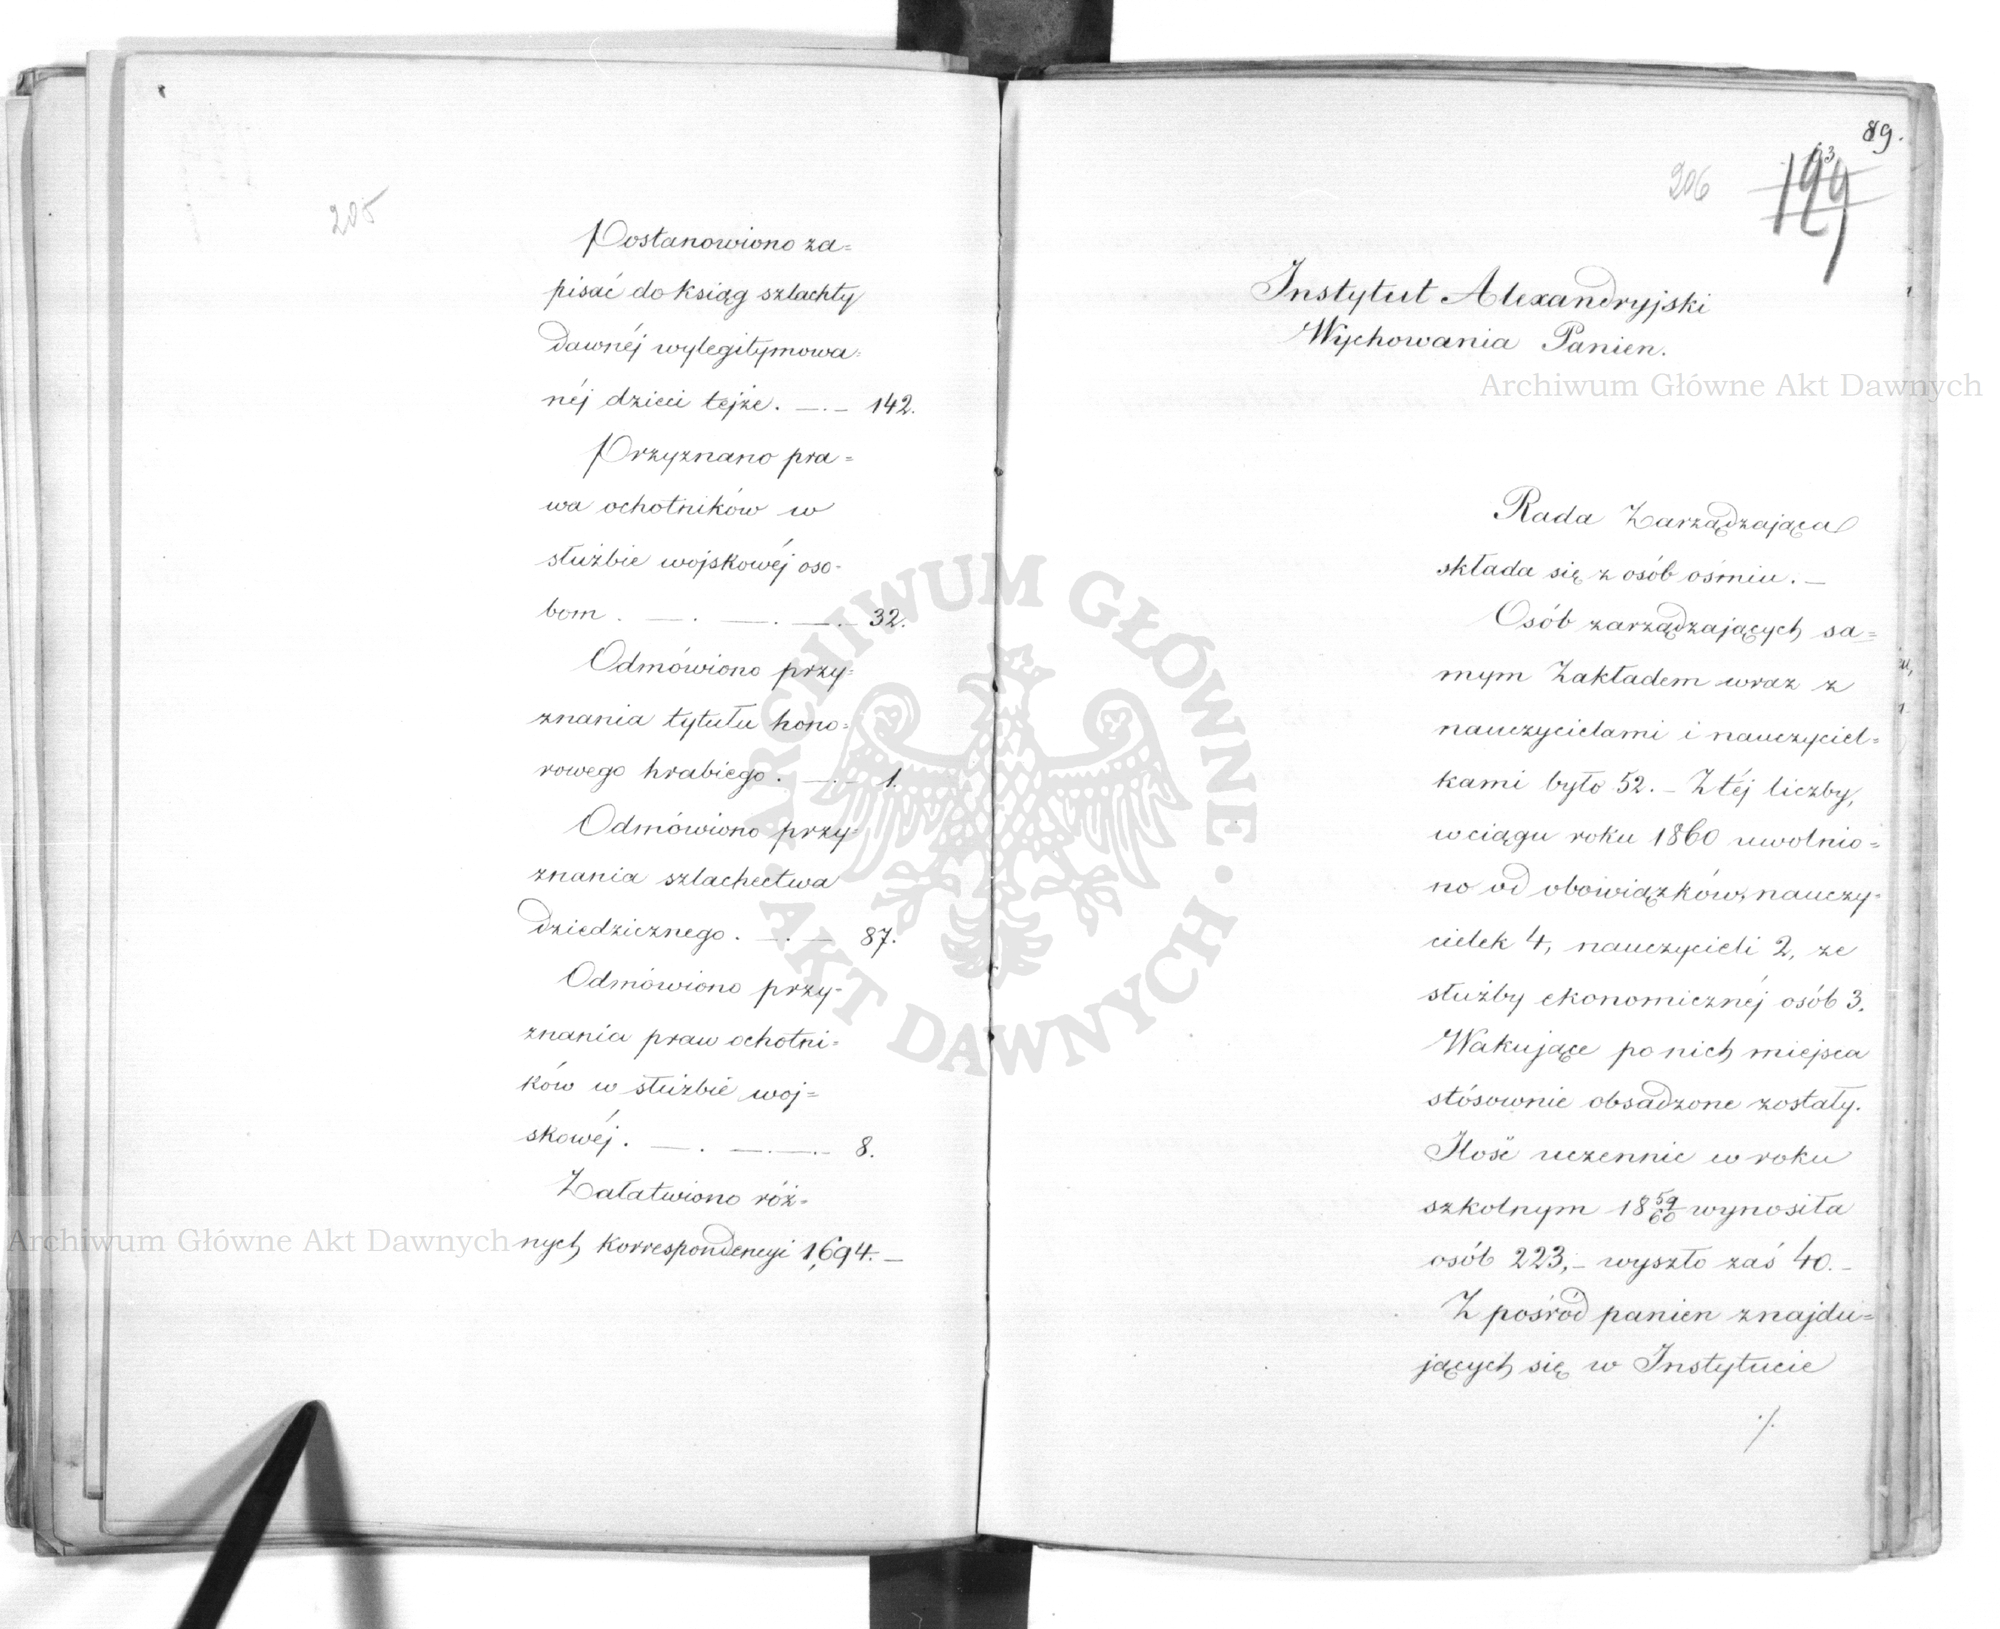 205
Postanowiono za=
pisać do ksiąg szlachty
dawnéj wylegitymowa=
néj dzieci tejże. —.— 142.
Przyznano pra=
wa ochotników w
służbie wojskowéj oso-
bom . —. —. —.— 32.
Odmówiono przy=
znania tytułu hono=
rowego hrabiego. —.— 1.
Odmówiono przy=
znania szlachectwa
dziedzicznego. —.— 87.
Odmówiono przy=
znania praw ochotni=
ków w służbie woj=
skowéj. —. —.—.— 8.
Załatwiono róż=
nych korrespondencyi 1,694.—
89.
206
Instytut Alexandryjski
Wychowania Panien.
Rada Zarządzająca
składa się z osób ośmiu. —
Osób zarządzających sa=
mym Zakładem wraz z
nauczycielami i nauczyciel=
kami było 52. — Z téj liczby,
w ciągu roku 1860 uwolnio=
no od obowiązków, nauczy=
cielek 4, nauczycieli 2, ze
służby ekonomicznéj osób 3.
Wakujące po nich miejsca
stósownie obsadzone zostały.
Ilość uczennic w roku
szkolnym 18 59/60 wynosiła
osób 223, — wyszło zaś 40. —
Z pośród panien znajdu=
jących się w Instytucie
./.
Archiwum Główne Akt Dawnych
Archiwum Główne Akt Dawnych
ARCHIWUM GŁÓWNE · AKT DAWNYCH ·